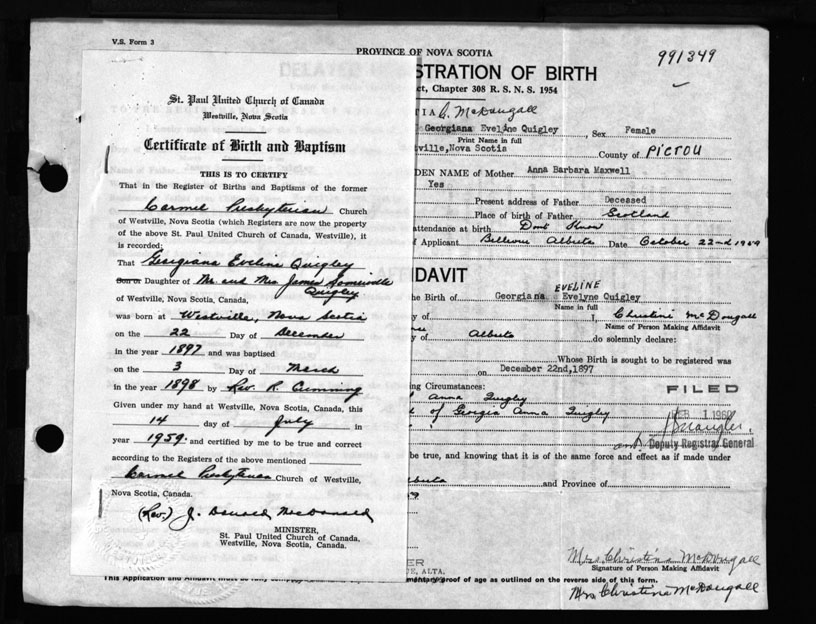 V.S. Form 3
PROVINCE OF NOVA SCOTIA
991349
St. Paul United Church of Canada
Westville, Nova Scotia
Certificate of Birth and Baptism
THIS IS TO CERTIFY
That in the Register of Births and Baptisms of the former
Carmel Presbyterian Church
of Westville, Nova Scotia (which Registers are now the property
of the above St. Paul United Church of Canada, Westville), it
is recorded:
That Georgiana Eveline Quigley
Son or Daughter of Mr. and Mrs James Somerville
Quigley
of Westville, Nova Scotia, Canada,
was born at Westville, Nova Scotia
on the 22 Day of December
in the year 1897 and was baptised
on the 3 Day of March
in the year 1898 by Rev. R. Cumming
Given under my hand at Westville, Nova Scotia, Canada, this
14 day of July in
year 1959 and certified by me to be true and correct
according to the Registers of the above mentioned
Carmel Presbyterian Church of Westville,
Nova Scotia, Canada.
(Rev.) J. Donald MacDonald
MINISTER,
St. Paul United Church of Canada,
Westville, Nova Scotia, Canada.
DELAYED
STRATION OF BIRTH
ct, Chapter 308 R. S. N. S. 1954
TIA C. McDougall
Georgiana Evelyne Quigley, Sex Female
Print Name in full
tville, Nova Scotia County of PICTOU
DEN NAME of Mother Anna Barbara Maxwell
Yes
Present address of Father Deceased
Place of birth of Father Scotland
attendance at birth Dont Know
of Applicant Bellevue Alberta Date October 22nd 1959
AFFIDAVIT
EVELINE
he Birth of Georgiana Evelyne Quigley
Name in full
y of I, Christina McDougall
Name of Person Making Affidavit
y of Alberta do solemnly declare:
Whose Birth is sought to be registered was
on December 22nd, 1897
ng Circumstances:
FILED
Anna Quigley
of Georgia Anna Quigley
FEB 1 1960
Deputy Registrar General
be true, and knowing that it is of the same force and effect as if made under
lberta and Province of
59
ER
CE, ALTA.
Mrs Christina McDougall
Signature of Person Making Affidavit
This Application and Affidavit must be fully mentary proof of age as outlined on the reverse side of this form.
Mrs Christina McDougall